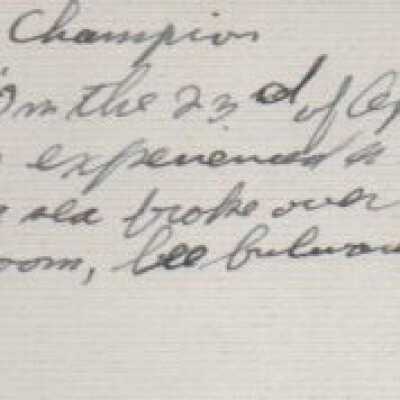 Champion
On the 23rd of Ap
experienced a
sea broke over
oom, lee bulwar